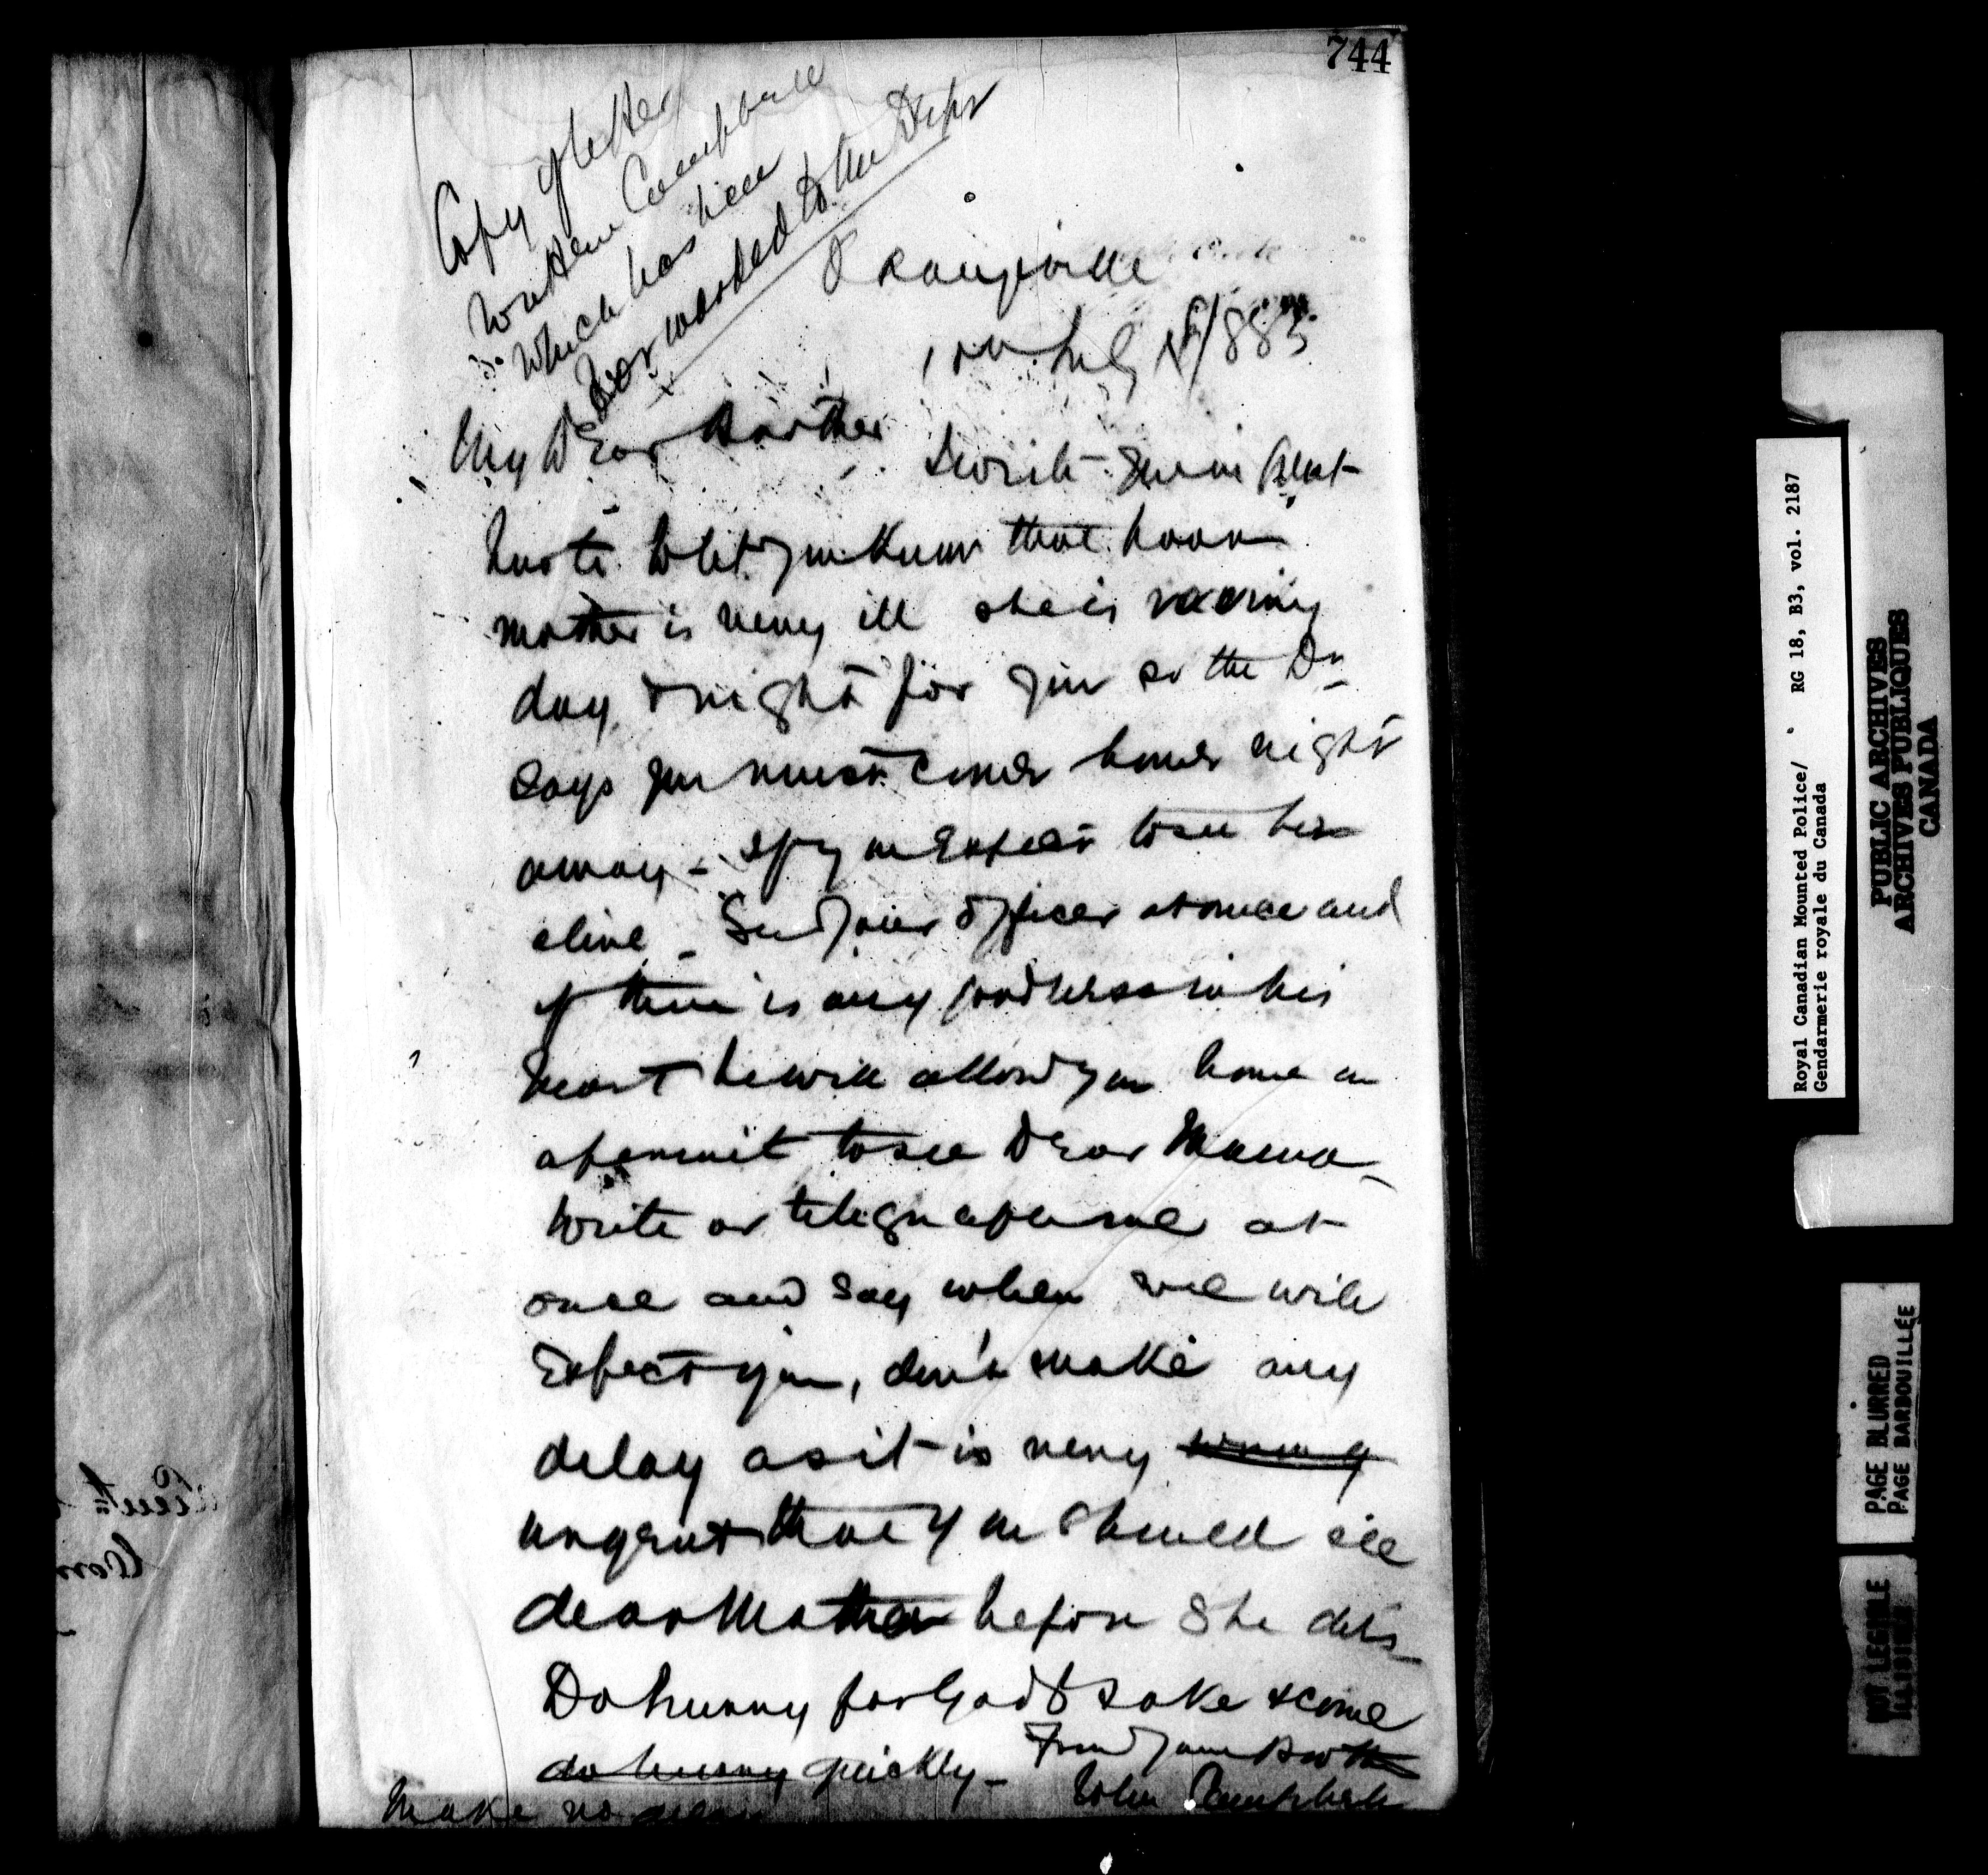 744
Copy of letter
written Campbell
which has been
forwarded to the Dept
Orangeville
10th July 1885
My Dear Brother
I write you in great
haste to let you know that poor
mother is very ill she is raving
day & night for you so the Dr
says you must come home right
away - if you expect to see her
alive - See your officer at once and
if there is any goodness in his
heart he will allow you home on
a permit to see Dear Mama -
write or telegraph me at
once and say when we will
Expect you, don't make any
delay as it is very
urgent that you should see
dear Mother before she dies -
Do hurry for God's sake & come
do hurry quickly - From your Brother
Make no delay John Campbell
Royal Canadian Mounted Police/ RG 18, B3, vol. 2187
Gendarmerie royale du Canada
PUBLIC ARCHIVES
ARCHIVES PUBLIQUES
CANADA
PAGE BLURRED
PAGE BARBOUILLÉE
NOT LEGIBLE
ILLISIBLE